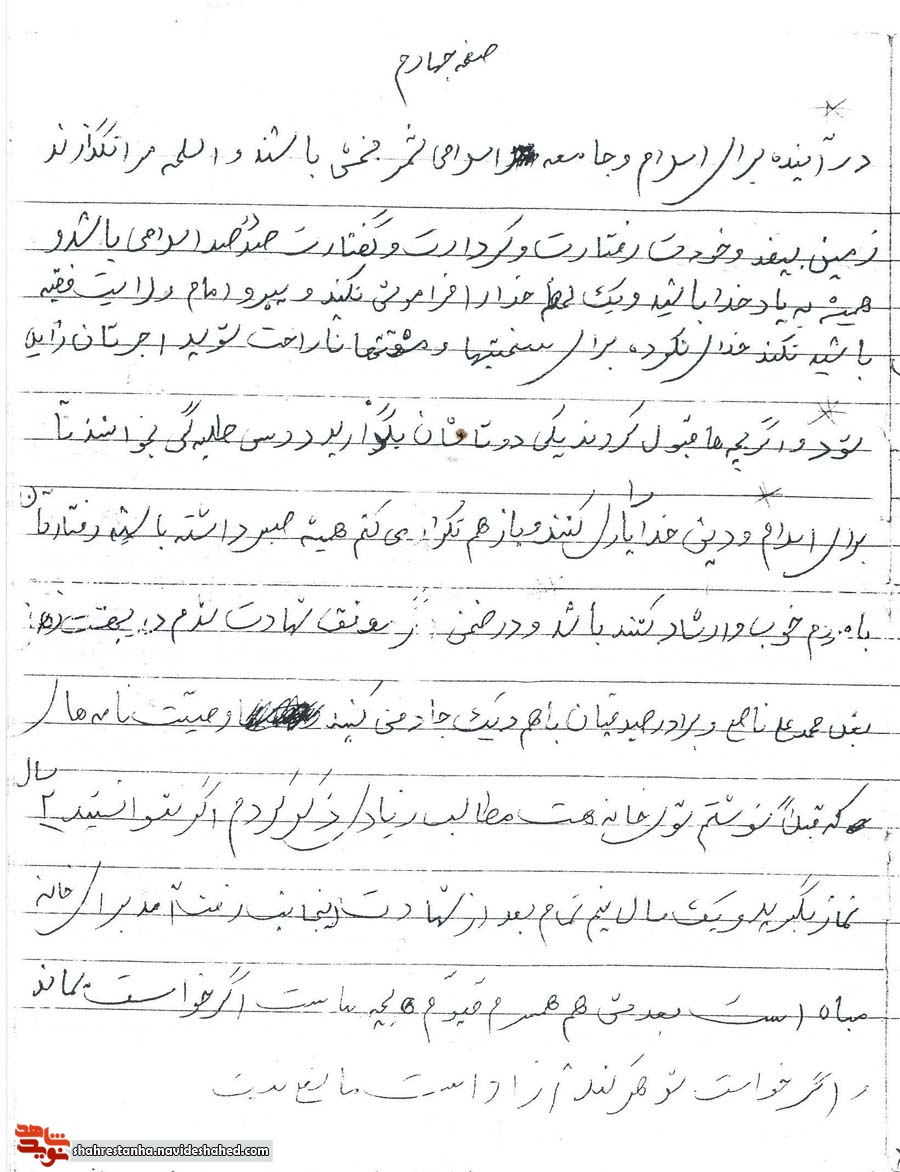 صفحه چهارم
در آینده برای اسلام و جامعه اسلامی ثمر بخش باشند و اسلحه مرا نگذارند
زمین بیفتد و خودت رفتارت و کردارت و گفتارت صد در صد اسلامی باشد و
همیشه به یاد خدا باشید و یک لحظه خدا را فراموش نکند و پیرو امام ولایت فقیه
باشید نکند خدای نکرده برای سختیها و مشقتها ناراحت شوید اجرتان زایل
شود و اگر بچه ها قبول کردند یکی دو تا شان بگذارید درس طلبه گی بخوانند تا
برای اسلام و دین خدا کار کنند و باز هم تکرار می کنم همیشه صبر داشته باشید رفتارتان
با مردم خوب و ارشاد کننده باشد و در ضمن موفق شهادت شدم در بهشت
بغل محمد علی ناصح و برادر صدیقیان با هم دیک جا دفن کنید وصیت نامه های
که قبلاً نوشتم توی خانه هست مطالب زیادی ذکر کردم اگر توانستید ۲ سال
نماز بگیرید و یک سال نیم تمام بعد از شهادت اینجانب رفت آمد برای خانه
مباه است بعدش هم همسرم قیوم بچه هاست اگر خواست بماند
و اگر خواست شوهر کند آزاد است مانع نیست
شاهد
نوید
shahrestanha.navideshahed.com